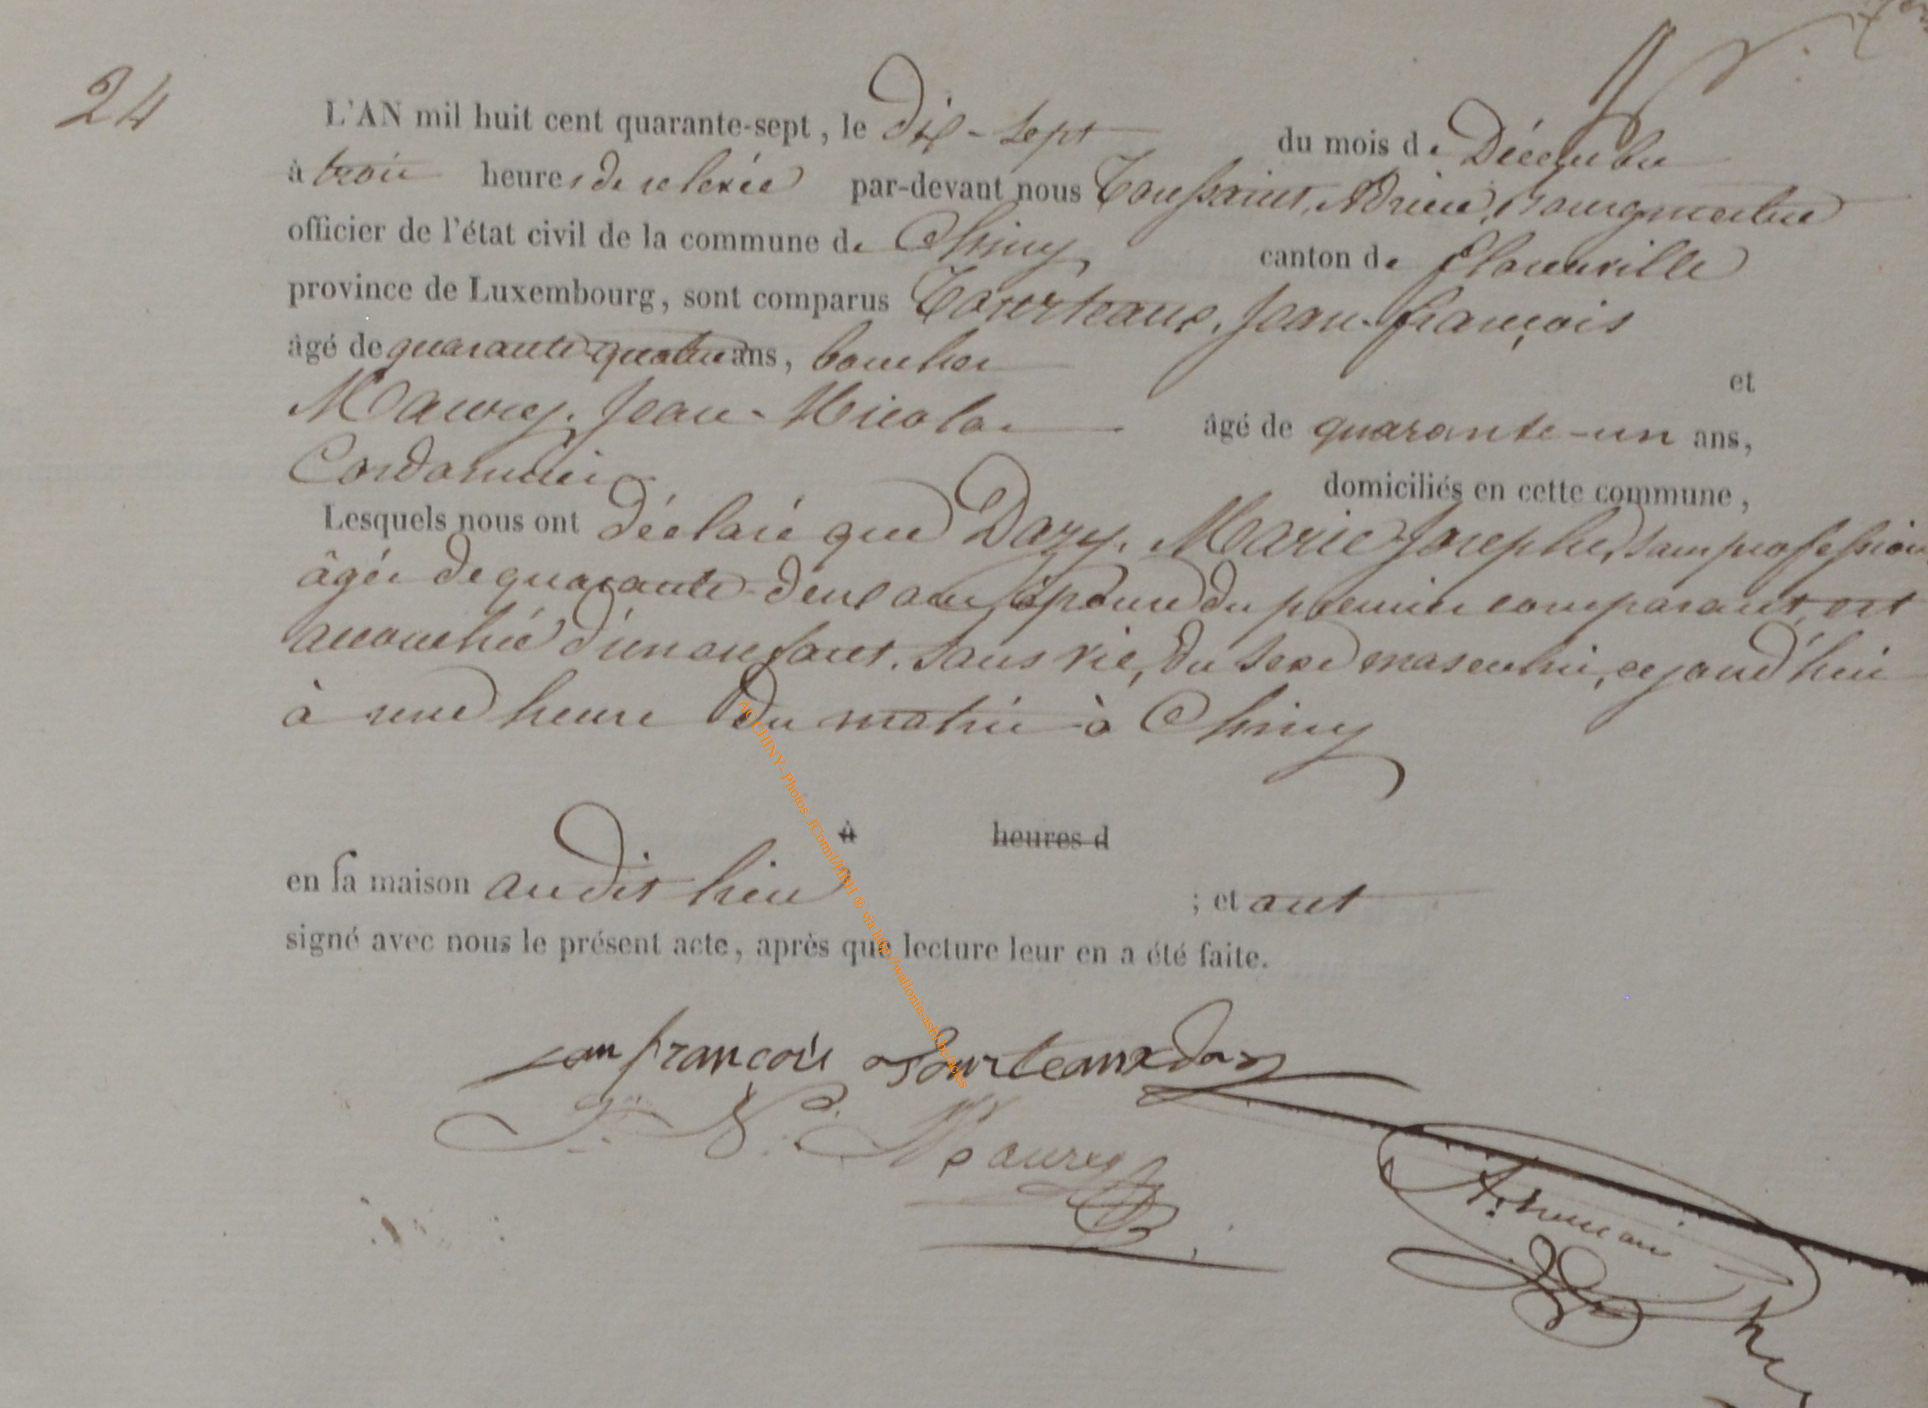 24
L'AN mil huit cent quarante-sept, le dix-sept du mois de Décembre
à trois heures de relevée par-devant nous Toussaint, Adrien, Bourgmestre
officier de l'état civil de la commune de Chiny canton de florenville
province de Luxembourg, sont comparus Tourteaux, Jean-françois
âgé de quarante-quatre ans, boucher et
Maurey, Jean-Nicolas âgé de quarante-un ans,
Cordonnier domiciliés en cette commune,
Lesquels nous ont déclaré que Dazy, Marie-Josephe, sans profession
âgée de quarante-deux ans, épouse du premier comparant, est
accouchée d'un enfant, sans vie, du sexe masculin, cejourd'hui
à une heure du matin à Chiny
à heures d
en sa maison audit lieu ; et ont
signé avec nous le présent acte, après que lecture leur en a été faite.
jean françois tourteaux dazy
J. N. Maurey